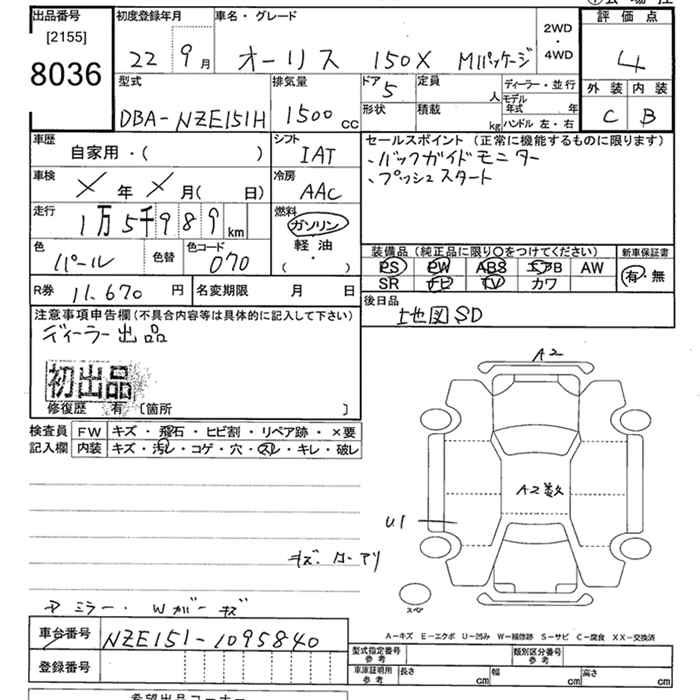 出品番号
[2155]
8036
初度登録年月
22 9月
車名・グレード
オーリス 150X Mパッケージ
2WD・4WD
評価点
4
外装 内装
C B
型式
DBA-NZE151H
排気量
1500cc
ドア
5
形状
定員
人
積載
kg
ディーラー・並行
モデル年式 年
ハンドル 左・右
車歴
自家用・( )
シフト
IAT
セールスポイント (正常に機能するものに限ります)
・バックガイドモニター
・プッシュスタート
車検
X年X月( 日)
冷房
AAC
走行
1万5千989km
燃料
ガソリン
軽油
( ・ )
色
パール
色替
色コード
070
装備品 (純正品に限り○をつけてください)
PS PW ABS エアB AW
SR ナビ TV カワ
新車保証書
有・無
R券 11,670円
名変期限 月 日
後日品
地図SD
注意事項申告欄(不具合内容等は具体的に記入して下さい)
ディーラー出品
初出品
修復歴 有 〔箇所 〕
検査員記入欄
FW キズ・飛石・ヒビ割・リペア跡・×要
内装 キズ・汚レ・コゲ・穴・スレ・キレ・破レ
A2
A2数
U1
キズ.カーアリ
スペア
ミラー・Wガーキズ
A2
車台番号 NZE151-1095840
登録番号
A-キズ E-エクボ U-凹み W-補修跡 S-サビ C-腐食 XX-交換済
型式指定番号 参考
類別区分番号 参考
車庫証明用 参考
長さ cm 幅 cm 高さ cm
希望出品コーナー